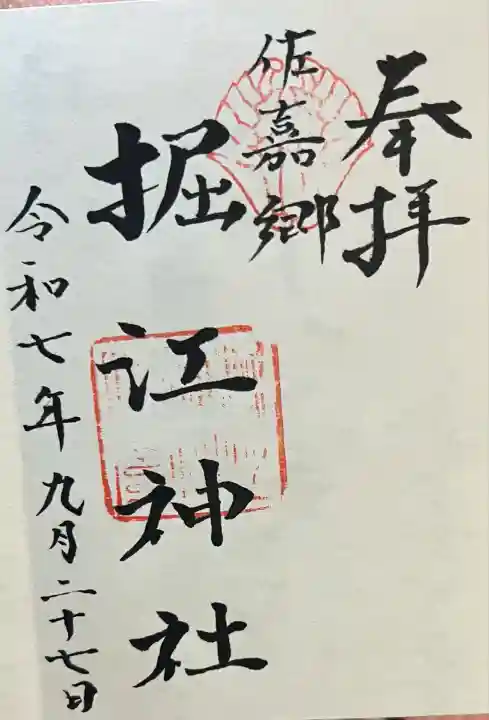 奉拝
佐嘉郷
掘江神社
令和七年九月二十七日